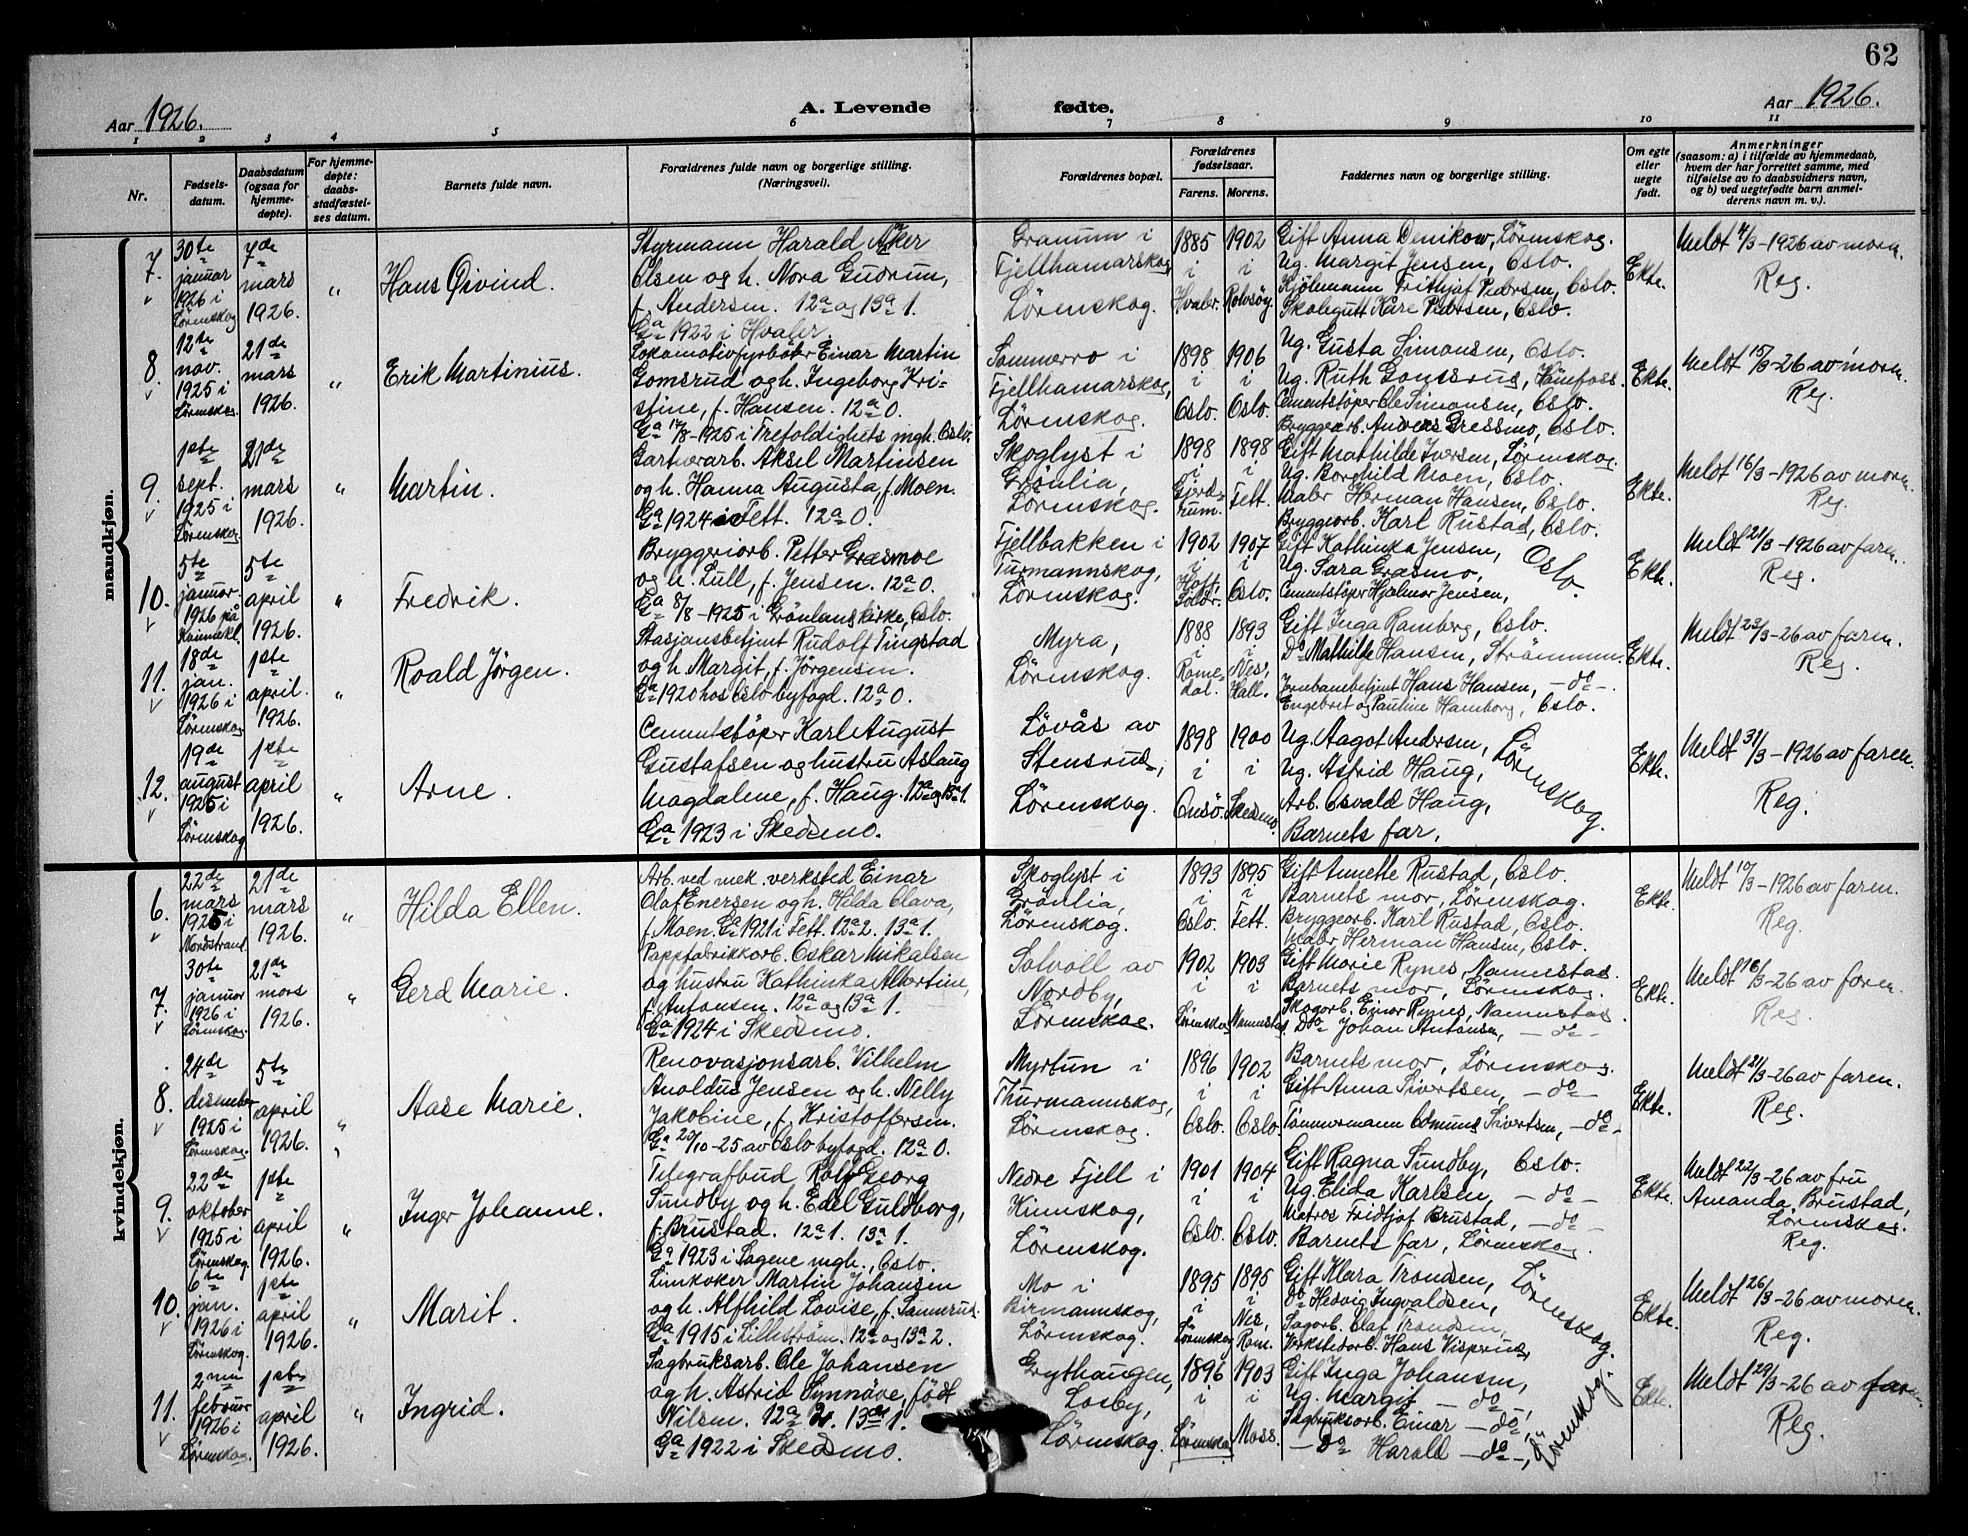 62
Aar 1926.
A. Levende fødte.
Aar 1926.
1 2 3 4 5 6 7 8 9 10 11
Nr.
Fødsels-datum.
Daabsdatum (ogsaa for hjemme-døpte).
For hjemme-døpte: daabs-stadfæstel-ses datum.
Barnets fulde navn.
Forældrenes fulde navn og borgerlige stilling. (Næringsvei).
Forældrenes bopæl.
Forældrenes fødselsaar.
Farens. Morens.
Faddernes navn og borgerlige stilling.
Om egte eller uegte født.
Anmerkninger
(saasom: a) i tilfælde av hjemmedaab,
hvem der har forrettet samme, med
tilføielse av to daabsvidners navn,
og b) ved uegtefødte barn anmel-
derens navn m. v.).
mandkjøn.
7. 30te januar 1926 i Lørenskog
7de mars 1926.
"
Hans Øivind.
Styrmann Harald Aker
Olsen og h. Nora Gudrun,
f. Andersen. 12a og 13a 1.
Ga 1922 i Hvaler.
Granum i
Fjellhamarskog
Lørenskog.
1885 i Hvaler.
1902 i Rolvsøy.
Gift Anna Denikow, Lørenskog.
Ug. Margit Jensen, Oslo.
Kjølmann Frithjof Pedersen, Oslo.
Skolegutt Kåre Pedersen, Oslo.
Ekte.
Meldt 4/3-1926 av moren.
Reg.
8. 12te nov. 1925 i Lørenskog.
21de mars 1926.
"
Erik Martinius.
Lokomotivfyrbøter Einar Martin
Gomsrud og h. Ingeborg Kri-
stine, f. Hansen. 12a 0.
Ga 17/8-1925 i Trefoldighets mgh. Oslo.
Sommerro i
Fjellhamarskog,
Lørenskog.
1898 i Oslo.
1906 i Oslo.
Ug. Gusta Simonsen, Oslo.
Ug. Ruth Gomsrud, Hønefoss.
Cementstøper Ole Simonsen, Oslo.
Bryggearb. Anders Gressmo, Oslo.
Ekte.
Meldt 15/3-26 av moren.
Reg.
9. 1ste sept. 1925 i Lørenskog.
21de mars 1926.
"
Martin.
Gartnerarb. Aksel Martinsen
og h. Hanna Augusta, f. Moen.
Ga 1924 i Fett. 12a 0.
Skoglyst i
Grønlia,
Lørenskog.
1898 i Gjerd-rum.
1898 i Fett.
Gift Mathilde Iversen, Lørenskog.
Ug. Borghild Moen, Oslo.
Maler Herman Hansen, Oslo.
Bryggearb. Karl Rustad, Oslo.
Ekte.
Meldt 16/3-1926 av moren.
Reg.
10. 5te januar. 1926 på Kvinnekl.
5te april 1926.
"
Fredrik.
Bryggeriarb. Petter Græsmoe
og h. Lull, f. Jensen. 12a 0.
Ga 8/8-1925 i Grønlands kirke, Oslo.
Fjellbakken i
Turmannskog,
Lørenskog.
1902 i Hoff, Solør.
1907 i Oslo.
Gift Kathinka Jensen,
Ug. Sara Græsmo, Oslo.
Cementstøper Hjalmar Jensen,
Ekte.
Meldt 21/3-1926 av faren.
Reg.
11. 18de jan. 1926 i Lørenskog
1ste april. 1926.
"
Roald Jørgen.
Stasjonsbetjent Rudolf Tingstad
og h. Margit, f. Jørgensen.
Ga 1920 hos Oslo byfogd. 12a 0.
Myra,
Lørenskog.
1888 i Rome-dal.
1893 i Nes, Hall.
Gift Inga Ramberg, Oslo.
Do Mathilde Hansen, Strømmen.
Jernbanebetjent Hans Hansen, -do-.
Engebret og Pauline Hamborg, Oslo.
Ekte.
Meldt 22/3-26 av faren.
Reg.
12. 19de august 1925 i Lørenskog.
1ste april 1926.
"
Arne.
Cementstøper Karl August
Gustafsen og hustru Aslaug
Magdalene, f. Haug. 12a og 13a 1.
Ga 1923 i Skedsmo.
Løvås av
Stensrud,
Lørenskog.
1898 i Onsø.
1900 i Skedsmo.
Ug. Aagot Andersen,
Ug. Astrid Haug, Lørenskog.
Arb. Osvald Haug,
Barnets far,
Ekte.
Meldt 31/3-1926 av faren.
Reg.
kvindekjøn.
6. 22de mars 1925 i Nordstrand.
21de mars 1926.
"
Hilda Ellen.
Arb. ved mek. verksted Einar
Olaf Enersen og h. Hilda Olava,
f. Moen. Ga 1921 i Fett. 12a 2. 13a 1.
Skoglyst i
Grønlia,
Lørenskog.
1893 i Oslo.
1895 i Fett.
Gift Annette Rustad, Oslo.
Barnets mor, Lørenskog.
Bryggearb. Karl Rustad, Oslo.
Maler Herman Hansen, Oslo.
Ekte.
Meldt 10/3-1926 av faren.
Reg.
7. 30te januar 1926 i Lørenskog.
21de mars 1926.
"
Gerd Marie.
Pappfabrikkarb. Oskar Mikalsen
og hustru Kathinka Albertine,
f. Antonsen. 12a og 13a 1.
Ga 1924 i Skedsmo.
Solvoll av
Nordby,
Lørenskog.
1902 i Lørenskog
1903 i Nannestad.
Gift Marie Rynes, Nannestad.
Barnets mor, Lørenskog.
Skogarb. Einar Rynes, Nannestad
Do Johan Antonsen, -do-
Ekte.
Meldt 16/3-26 av faren.
Reg.
8. 24de desember 1925 i Lørenskog.
5te april 1926.
"
Aase Marie.
Renovasjonsarb. Vilhelm
Anoldus Jensen og h. Nelly
Jakobine, f. Kristoffersen.
Ga 20/10-25 av Oslo byfogd. 12a 0.
Myrtun i
Thurmannskog,
Lørenskog.
1896 i Oslo.
1902 i Oslo.
Barnets mor, Lørenskog.
Gift Anna Sivertsen, -do-
Tømmermann Edmund Sivertsen, -do-
Ekte.
Meldt 21/3-26 av faren.
Reg.
9. 22de oktober 1925 i Lørenskog.
1ste april 1926.
"
Inger Johanne.
Telegrafbud Rolf Georg
Sundby og h. Edel Guldborg,
f. Brustad. 12a 1. 13a 1.
Ga 1923 i Sagene mgh., Oslo.
Nedre Fjell i
Kinnskog,
Lørenskog.
1901 i Oslo.
1904 i Oslo.
Gift Ragna Sundby, Oslo.
Ug. Elida Karlsen, -do-
Matros Fridtjof Brustad, -do-
Barnets far, Lørenskog.
Ekte.
Meldt 22/3-26 av fru
Amanda Brustad,
Lørenskog.
Reg.
10. 6te jan. 1926 i Lørenskog.
1ste april 1926.
"
Marit.
Limkoker Martin Johansen
og h. Alfhild Lovise, f. Sannerud.
Ga 1915 i Lillestrøm. 12a og 13a 2.
Mo i
Birmannskog,
Lørenskog.
1895 i Lørenskog
1895 i Nes, Rom.
Gift Klara Trondsen,
do Hedvig Ingvaldsen, Lørenskog.
Sagarb. Olaf Trondsen,
Verkstedarb. Hans Visperud
Ekte.
Meldt 26/3-26 av moren.
Reg.
11. 2nen februar 1926 i Lørenskog
1ste april 1926.
"
Ingrid.
Sagbruksarb. Ole Johansen
og h. Astrid Synnøve, født
Nilsen. 12a 2. 13de 1.
Ga 1922 i Skedsmo.
Grythaugen,
Losby,
Lørenskog.
1896 i Lørenskog
1903 i Moss.
Gift Inga Johansen,
Ug. Margit -do-,
Sagbruksarb. Einar -do-,
-Do Harald -do-, Lørenskog.
Ekte.
Meldt 29/3-26 av faren
Reg.